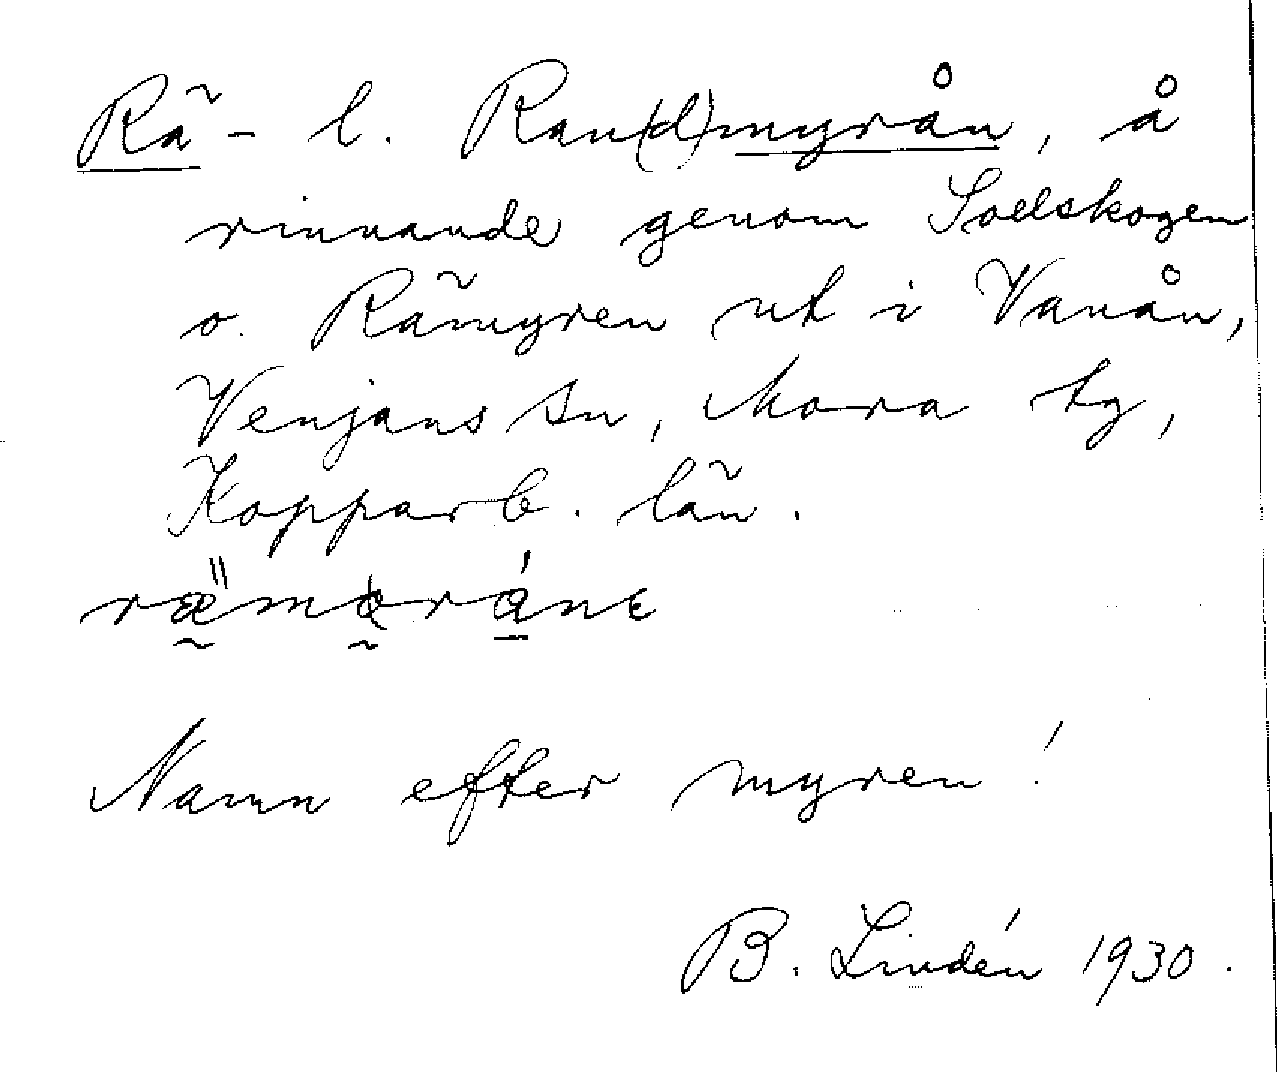 Rä- l. Ran(d)myrån, å
rinnande genom Soelskogen
o. Rämyren ut i Vanån,
Venjans sn, Mora tg,
Kopparb. län.
Namn efter myren!
B. Lindén 1930.